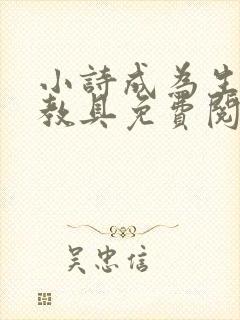 小詩成為生
教具免費閱
吴忠信